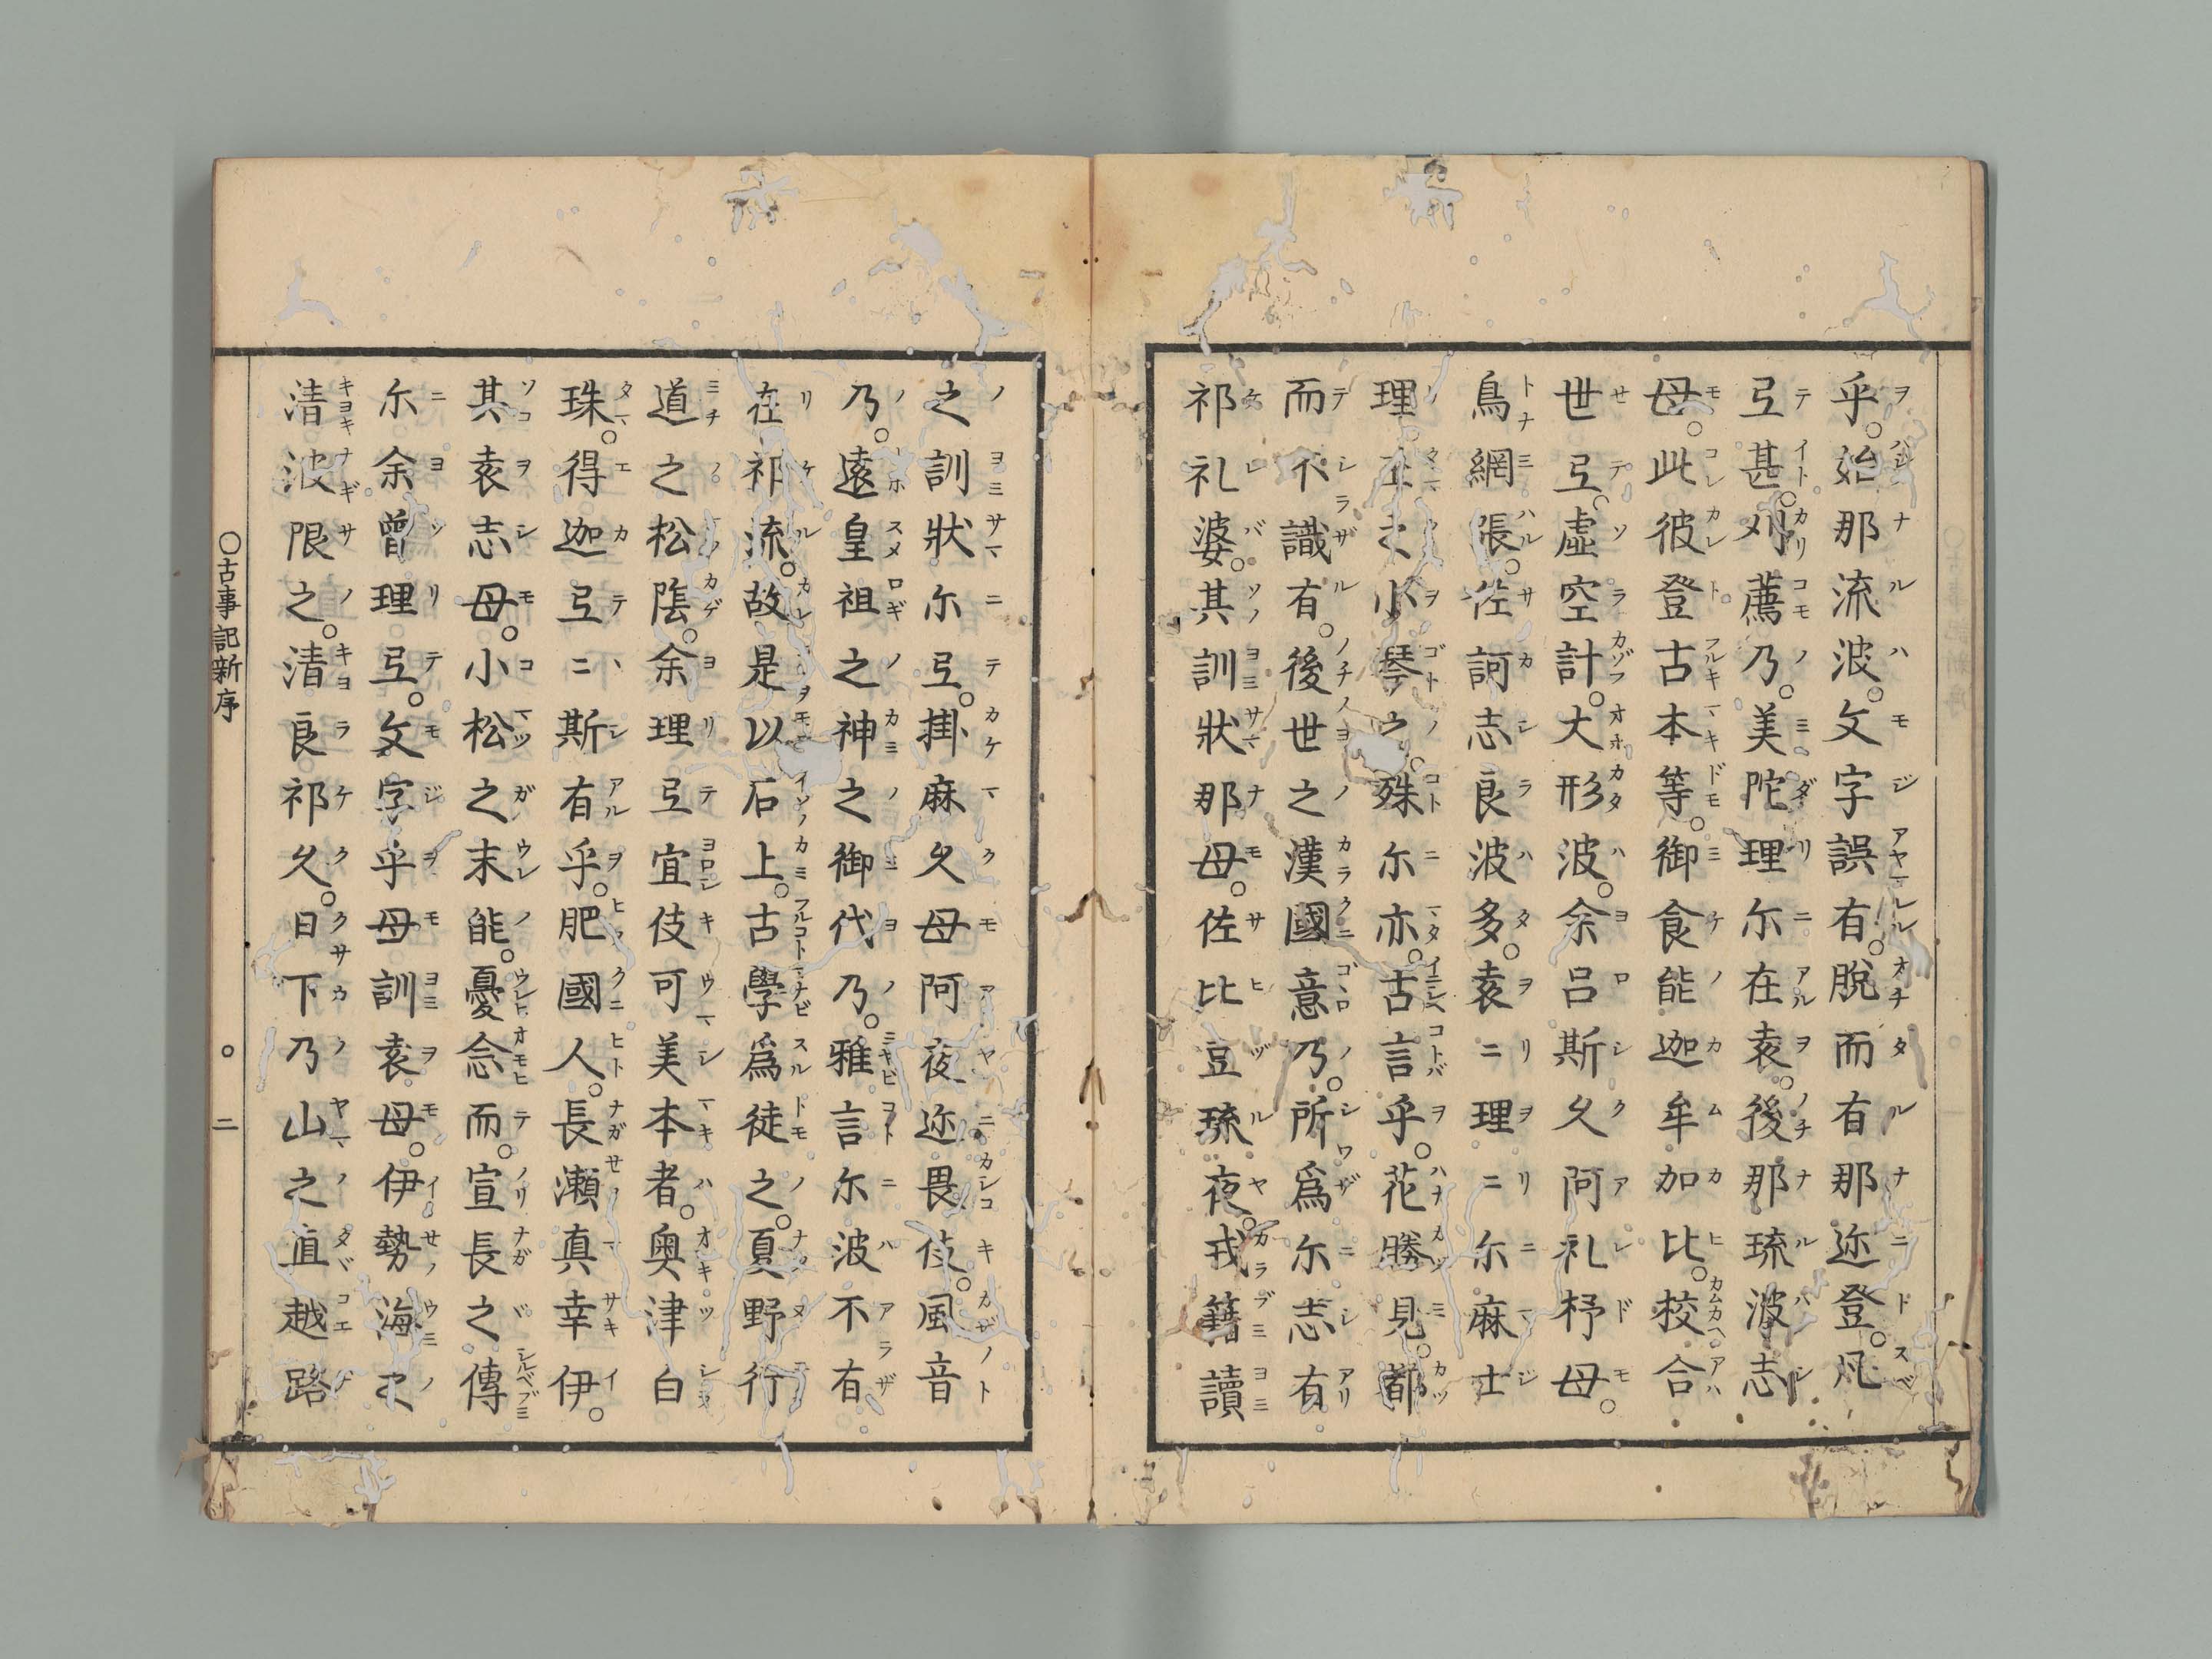 乎。始那流波。文字誤有。脫而有那迩登。凡
弖甚。刈薦乃。美陀理尓在袁。後那琉波志
母。此彼登古本等。御食能迦牟加比。校合
世弖。虛空計。大形波。余呂斯久阿礼杼母。
鳥網張。佐訶志良波多。袁〻理〻尓麻士
理。玉之小琴之。殊尓亦。古言乎。花勝見。都
而不識有。後世之漢國意乃。所爲尓志有
祁礼婆。其訓狀那母。佐比豆琉夜。戎籍讀
之訓狀尓弖。掛麻久母阿夜迩。畏伎。風音
乃。遠皇祖之神之御代乃。雅言尓波不有
在祁流。故是以石上。古學爲徒之。夏野行
道之松陰。余理弖宜伎可美本者。奧津白
珠。得迦弖〻斯有乎。肥國人。長瀨真幸伊。
其袁志母。小松之末能。憂念而。宣長之傳
尓余曾理弖。文字乎母訓袁母。伊勢海之
清波限之。清良祁久。日下乃山之直越路
○古事記新序 ○ 二